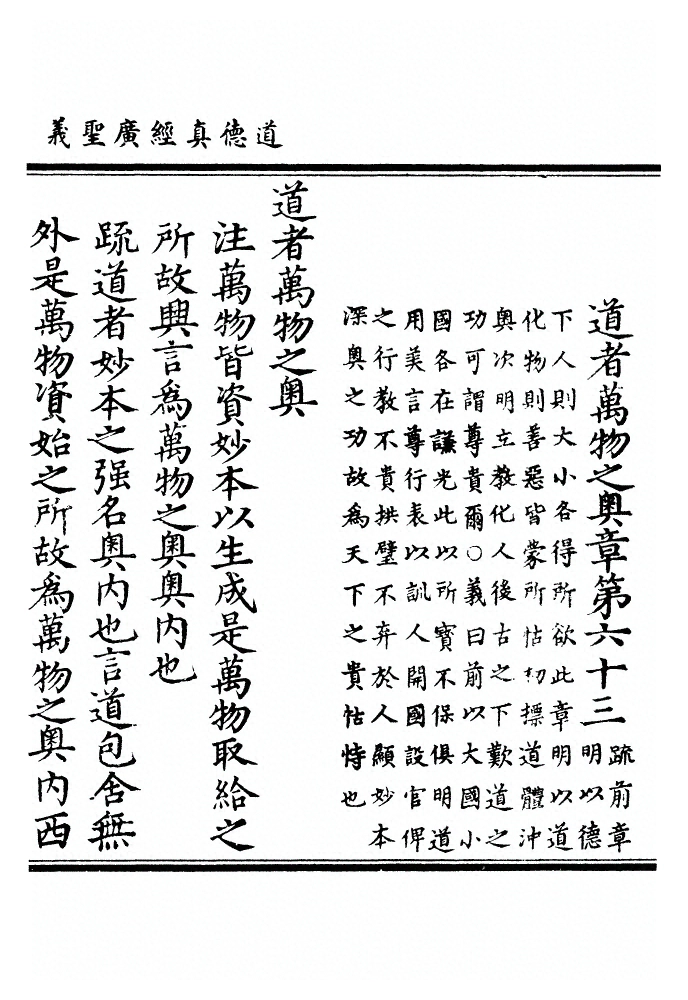 道德真經廣聖義
道者萬物之奧章第六十三
疏前章
明以德
下人則大小各得所欲此章明以道
化物則善惡皆蒙所怙初摽道體沖
奧次明立教化人後古之下歎道之
功可謂尊貴爾○義曰前以大國小
國各在謙光此以所寳不保俱明道
用美言尊行表以訓人開國設官俾
之行教不貴拱璧不弃於人顯妙本
深奧之功故爲天下之貴怙恃也
道者萬物之奧
注萬物皆資妙本以生成是萬物取給之
所故興言爲萬物之奧奧内也
疏道者妙本之强名奧内也言道包舍無
外是萬物資始之所故爲萬物之奧内西